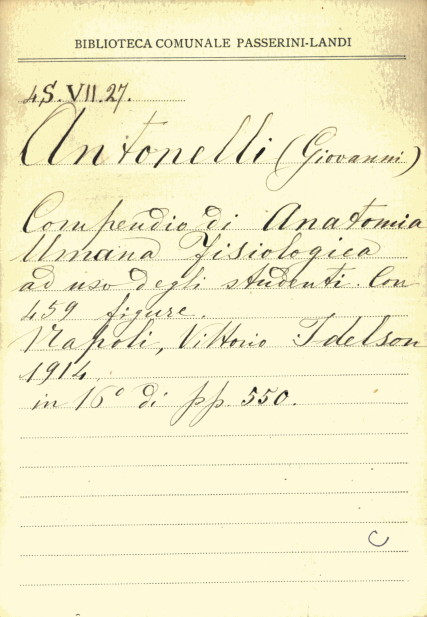 BIBLIOTECA COMUNALE PASSERINI-LANDI
4S.VII.27.
Antonelli (Giovanni)
Compendio di Anatomia
Umana Fisiologica
ad uso degli studenti. Con
459 figure.
Napoli, Vittorio Idelson
1914.
in 16° di pp. 550.
C